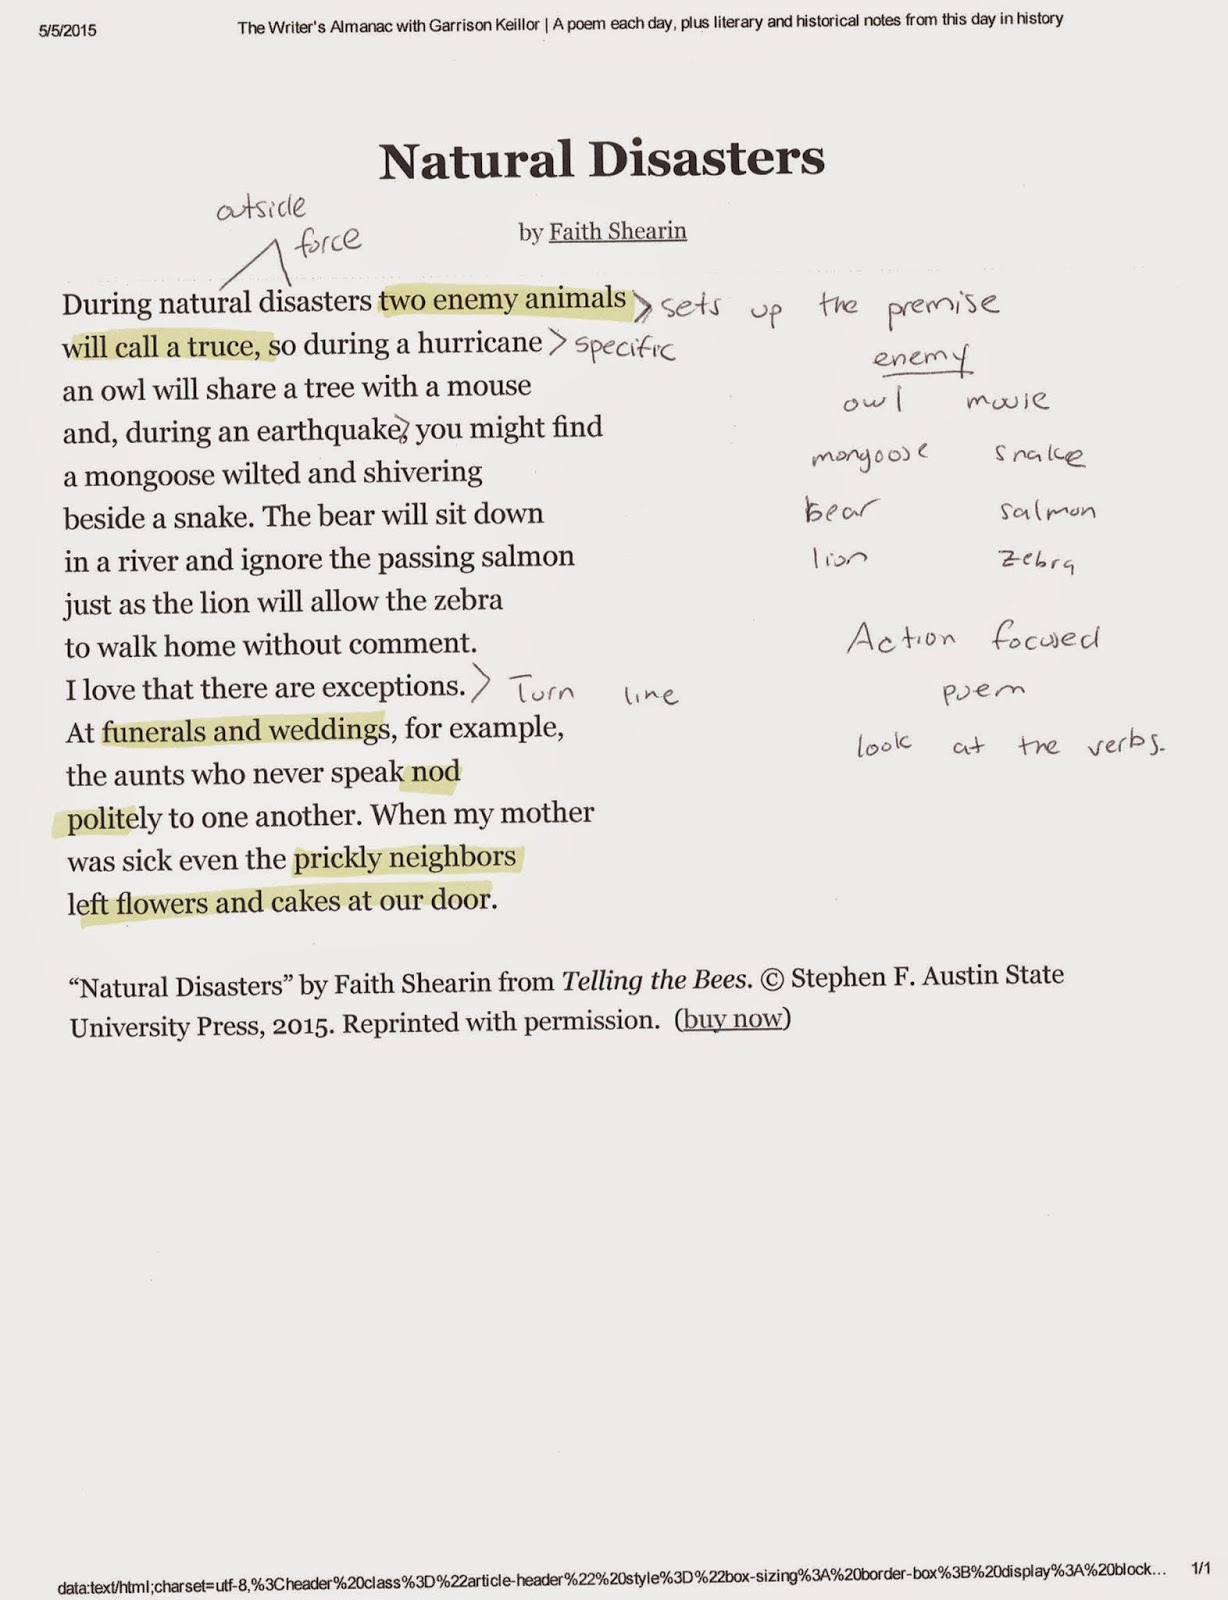 5/5/2015 The Writer's Almanac with Garrison Keillor | A poem each day, plus literary and historical notes from this day in history
Natural Disasters
outside
force
by Faith Shearin
During natural disasters two enemy animals > sets up the premise
will call a truce, so during a hurricane > specific
enemy
an owl will share a tree with a mouse
owl mouse
and, during an earthquake, you might find
mongoose snake
a mongoose wilted and shivering
beside a snake. The bear will sit down
bear salmon
in a river and ignore the passing salmon
lion zebra
just as the lion will allow the zebra
to walk home without comment.
Action focused
I love that there are exceptions. > Turn line
poem
At funerals and weddings, for example,
look at the verbs.
the aunts who never speak nod
politely to one another. When my mother
was sick even the prickly neighbors
left flowers and cakes at our door.
“Natural Disasters” by Faith Shearin from Telling the Bees. © Stephen F. Austin State
University Press, 2015. Reprinted with permission. (buy now)
data:text/html;charset=utf-8,%3Cheader%20class%3D%22article-header%22%20style%3D%22box-sizing%3A%20border-box%3B%20display%3A%20block... 1/1